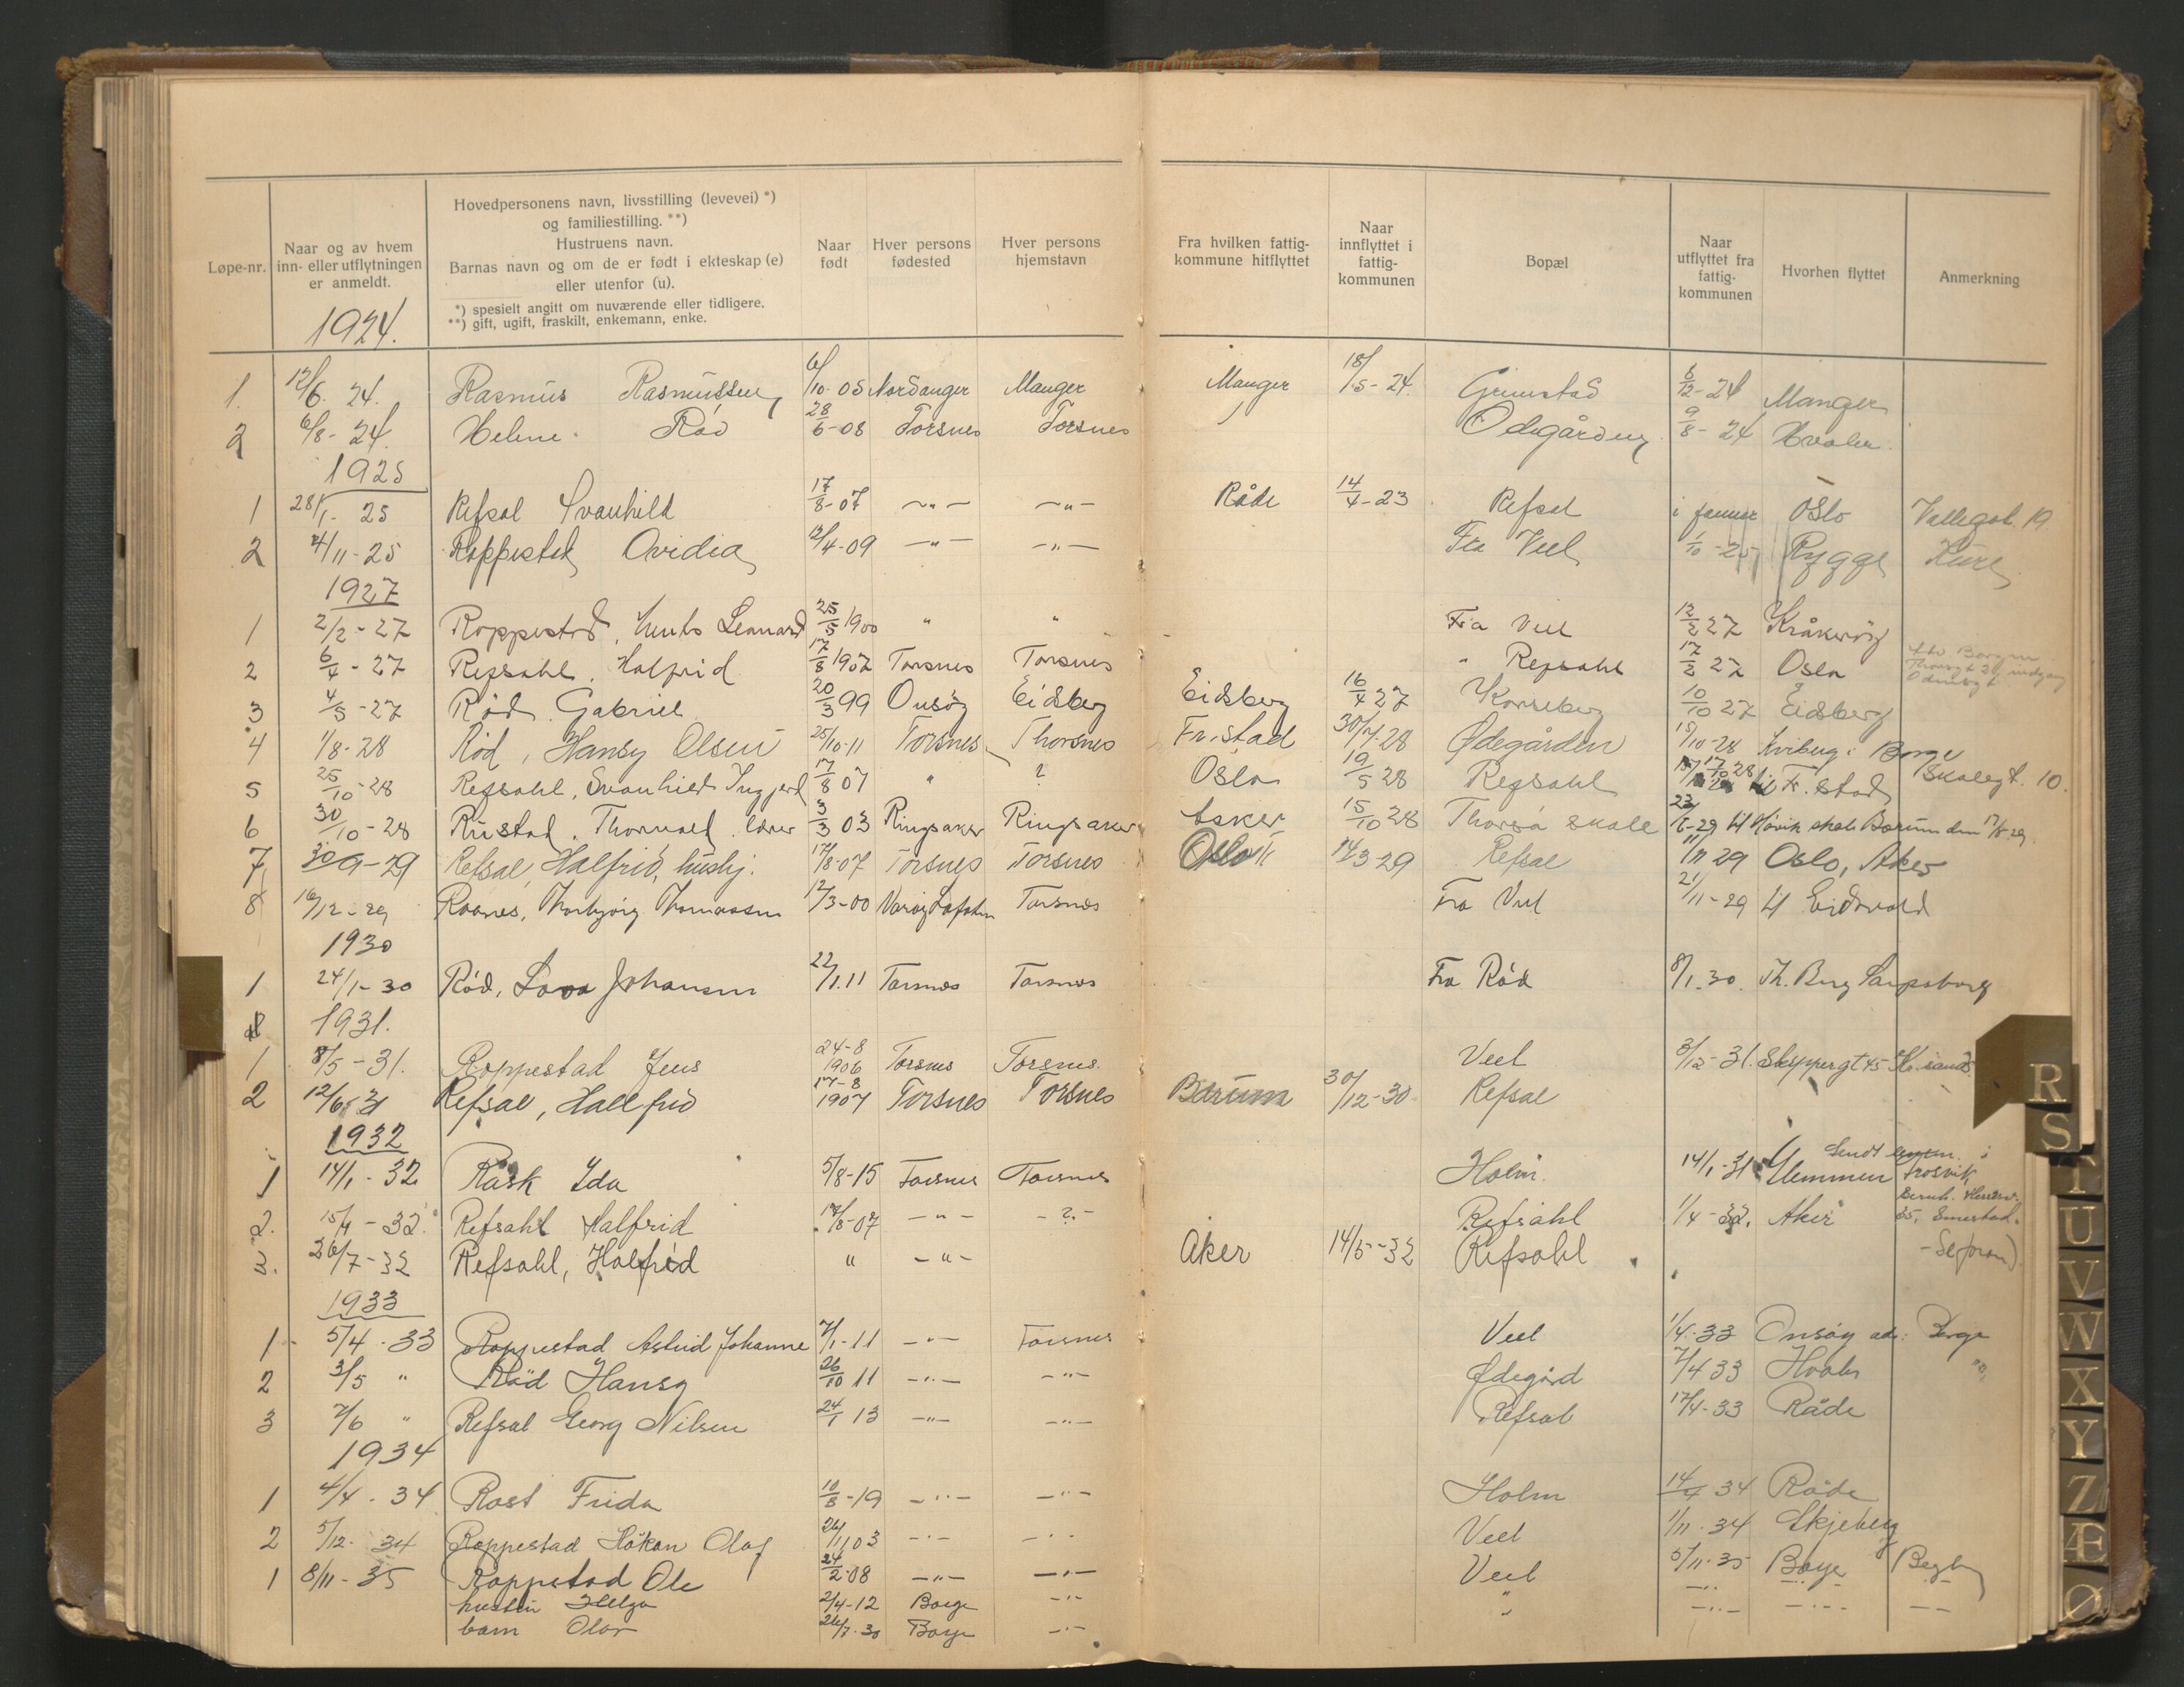 Løpe-nr.
Naar og av hvem inn- eller utflytningen er anmeldt.
Hovedpersonens navn, livsstilling (levevei) *)
og familiestilling. **)
Hustruens navn.
Barnas navn og om de er født i ekteskap (e)
eller utenfor (u).
*) spesielt angitt om nuværende eller tidligere.
**) gift, ugift, fraskilt, enkemann, enke.
Naar født
Hver persons fødested
Hver persons hjemstavn
Fra hvilken fattig-kommune hitflyttet
Naar innflyttet i fattig-kommunen
Bopæl
Naar utflyttet fra fattig-kommunen
Hvorhen flyttet
Anmerkning
1924.
1. 12/6. 24. Rasmus Rasmussen 6/10-05 Nordanger Manger Manger 18/5-24 Grimstad 6/12-24 Manger
2 6/8-24. Helene Rød 28/6-08 Torsnes Torsnes Ødegården 9/8-24 Hvaler
1925
1 28/1-25 Refsal Svanhild 17/8-07 -"- -"- Råde 14/4-23 Refsal i januar Oslo Vallegat. 19
2 4/11-25 Roppestad Ovidia 12/4-09 -"- -"- Fra Veel 1/10-25 Rygge
1927
1 2/2-27 Roppestad, Leonard 25/5 1900 " " Fra Veel 12/2 27 Kråkerøy
2 6/4-27 Refsahl. Halfrid 17/8 1907 Torsnes Torsnes " Refsahl 17/2 27 Oslo
3 4/5-27 Rød. Gabriel 20/3 99 Onsøy Eidsberg Eidsberg 16/4 27 10/10 27 Eidsberg
4 1/8-28 Rød, Hansy Olsen 25/10-11 Torsnes Thorsnes Fr.stad 30/7-28 Ødegården 15/10-28 i Borge
5 25/10-28 Refsahl, Svanhild Ingjerd 17/8 07 " ? Oslo 19/5 28 Refsahl 17/10 28 Fr. stad Skalegt. 10.
6 30/10-28 Rustad. Thorvald. lærer 3/3 03 Ringsaker Ringsaker Asker 15/10 28 Thorsø skole 23/8-29 til Høvik skole Bærum den 17/8 29
7 30/9-29 Refsal, Halfrid, hushj. 17/8-07 Torsnes Torsnes Oslo 14/3-29 Refsal 29 Oslo, Aker
8 16/12-29 Roanes, Thorbjørg Thomassen 12/3-00 Torsnes Fra Veel 21/11-29 til Eidsvold
1930
1 24/1-30 Rød, Johansen 22/1.11 Torsnes Torsnes Fra Rød 8/1.30. Th. Berg Sarpsborg
1931.
1 8/5-31. Roppestad Jens 24-8 1906 Torsnes Torsnes. Veel 3/12-31. Skippergt 45 Kr.sand
2 12/6-31 Refsal, Hallfrid 17-8 1907 Torsnes Torsnes Bærum 30/12-30 Refsal
1932
1 14/1-32 Rask Ida 5/8-15 Torsnes Torsnes Holm. 14/1-31 Glemmen Sendt i Trosvik
2. 15/4-32. Refsahl Halfrid 17/8-07 -"- -?- Refsahl 1/4-32. Aker 35, Smestad.
3. 26/7-32 Refsahl, Halfrid " -"- Aker 14/5-32 Refsahl
1933
1 5/4-33 Roppestad Astrid Johanne 7/1-11 -"- Torsnes Veel 1/4-33 Onsøy ad: Borge
2 3/5 " Rød Hansy 26/10 11 -"- -"- Ødegård 7/4 33 Hvaler "
3 7/6 " Refsal Georg Nilsen 24/1 13 -"- -"- Refsal 17/4-33 Råde
1934
1 4/4-34 Rost Frida 10/8-19 -"- -"- Holm 34 Råde
2 5/12-34 Roppestad Håkon Olaf 26/11 03 -"- -"- Veel 1/11-34 Skjeberg
1 8/11-35 Roppestad Ole 24/2-08 -"- -"- Veel 5/11-35 Borge Begby
hustru Helga 2/4-12 Borge -"- " -"- -"- -"-
barn Olav 26/7-30 Borge -"-
R
S
T
U
V
W
X
Y
Z
Æ
Ø